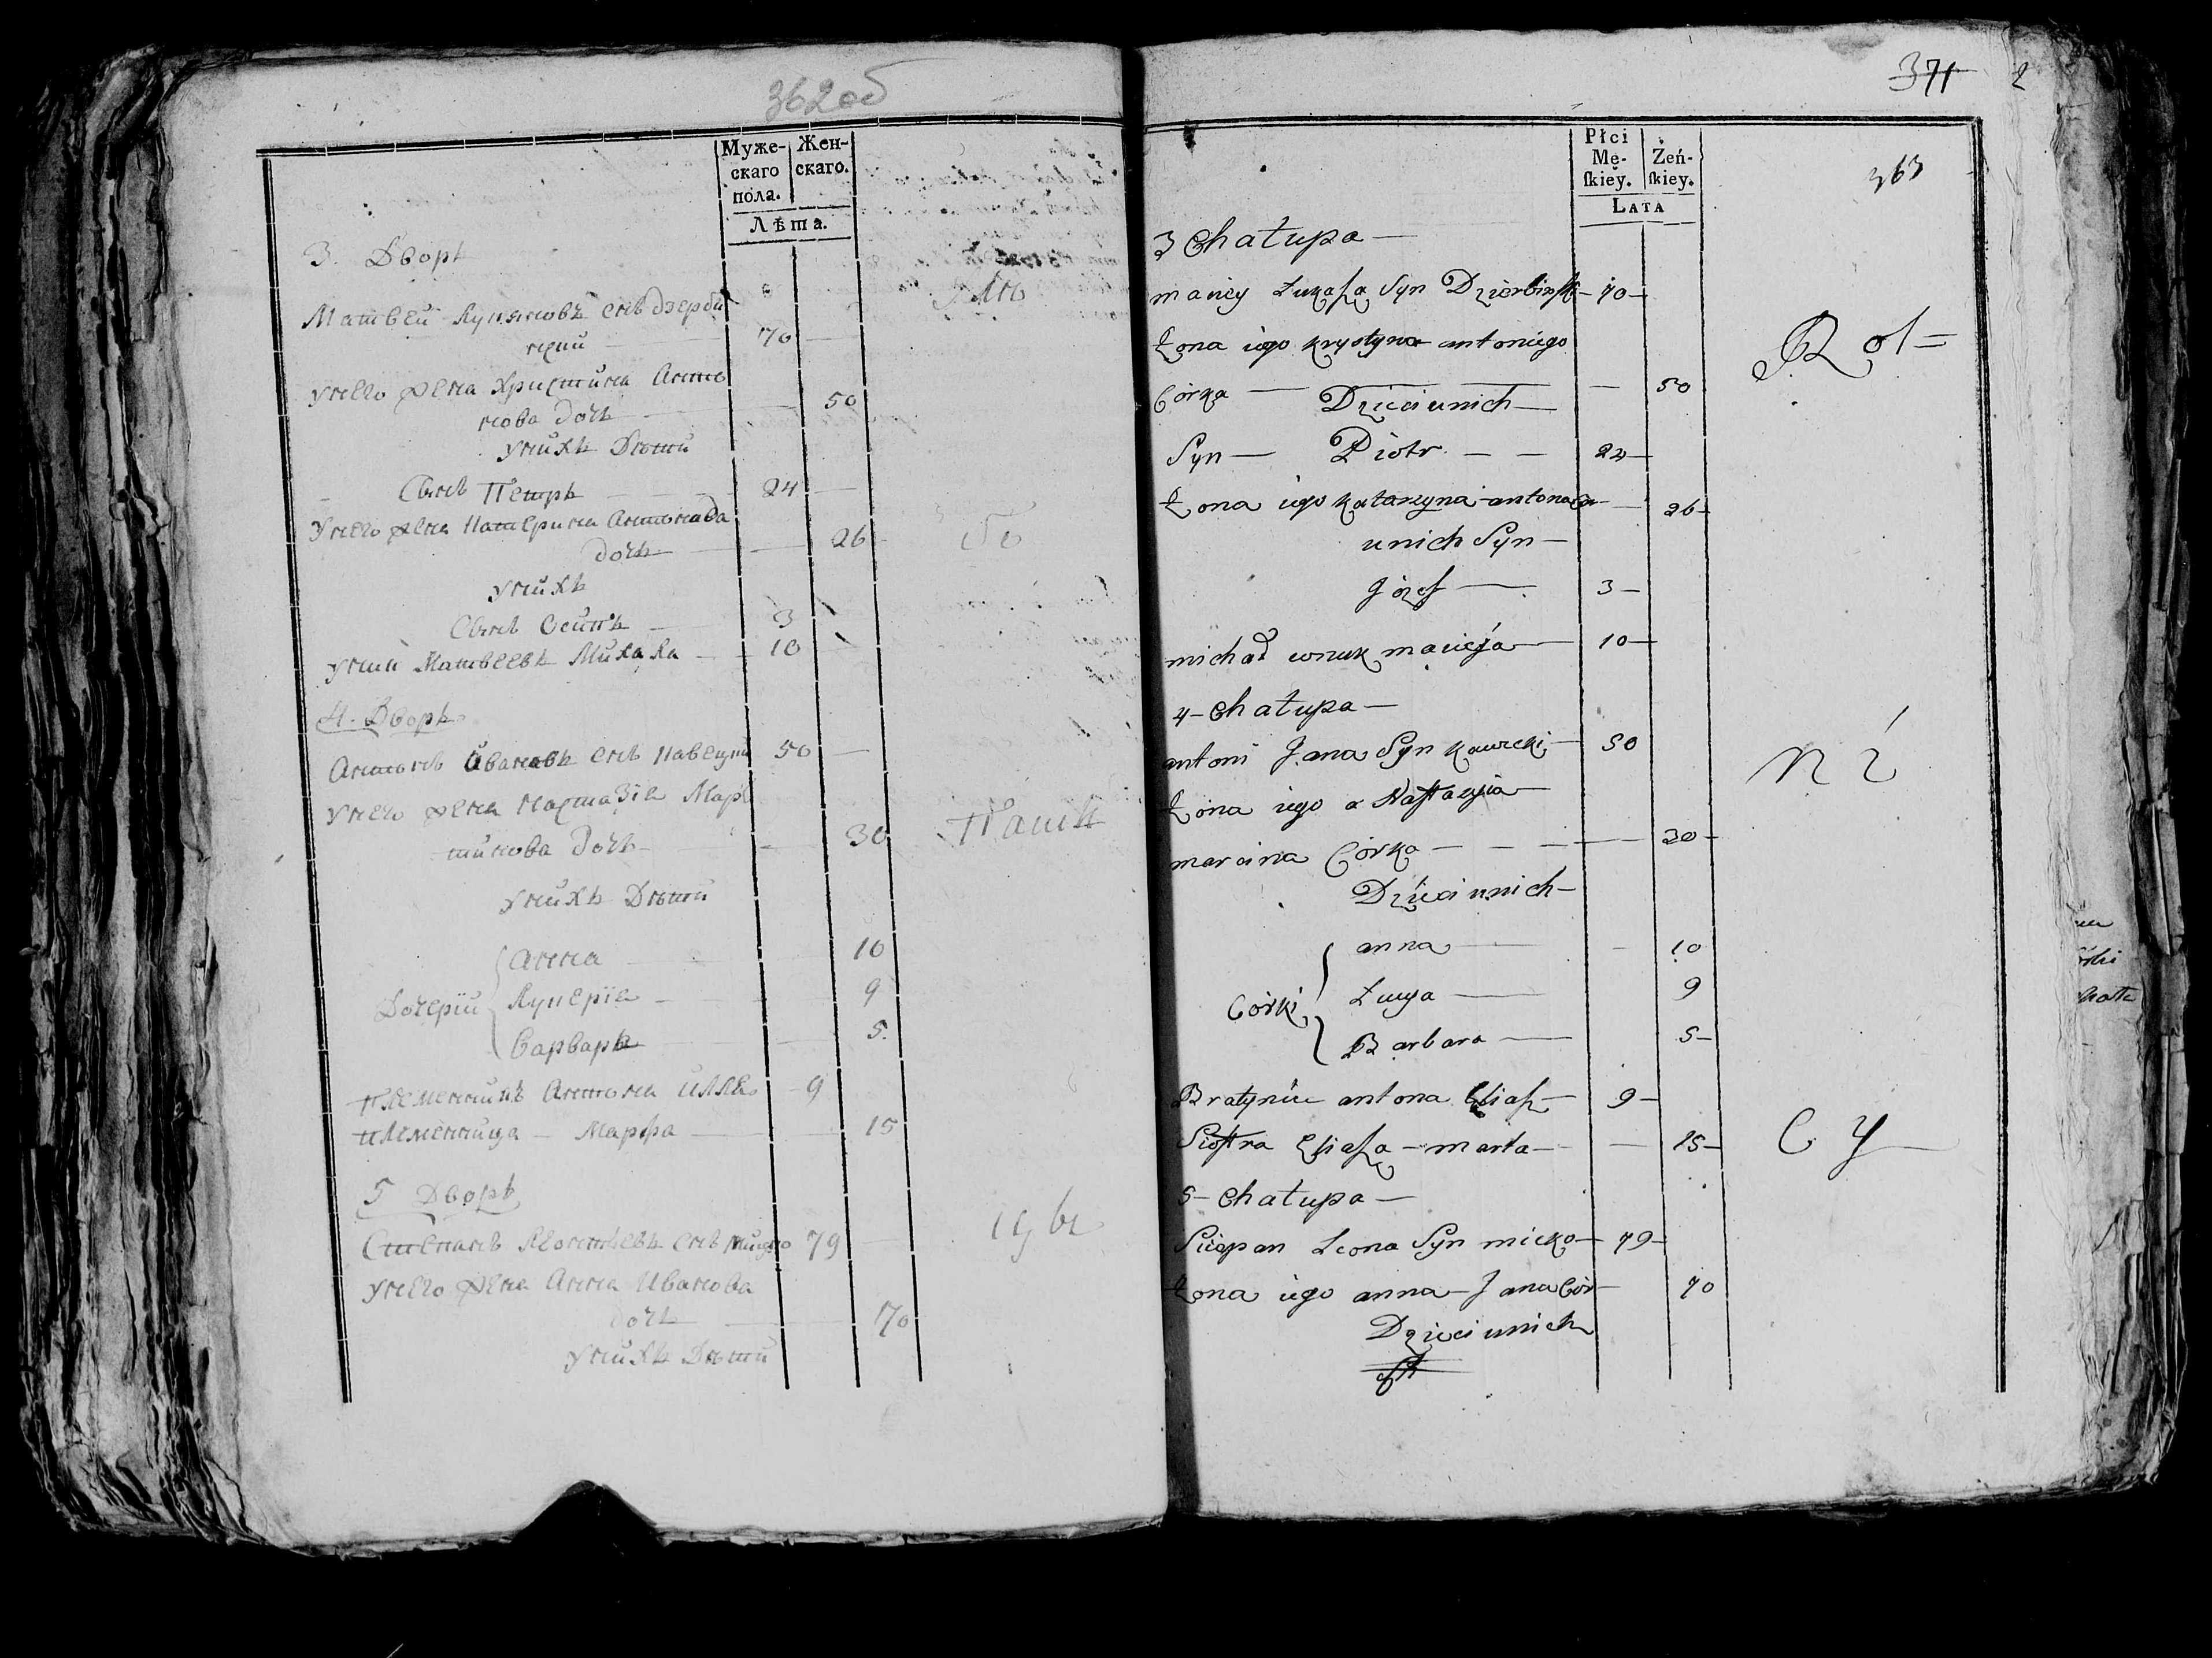 362 об
Муже-
скаго
пола.
Жен-
скаго.
Лѣта.
3. Дворъ
Матвей Лукяновъ снъ Дзерби
нский 70
унего жена Христина Анто
нова дочь 50
унихъ Дѣти
Сынъ Петръ 24
Унего жена Катерина Антонова
дочь 26
унихъ
Сынъ Осипъ 3
Матвеевъ Михала 10
4. Дворъ
Антонъ Ивановъ снъ Кавецки 50
унего жена Настазiя Мар
тинова дочь 30
унихъ Дѣти
Анна 10
Дочерiи Лукерiя 9
Варвара 5
племенникъ Антона Илля 9
племенница — Марфа 15
5 Дворъ
Степанъ Леонтьевъ снъ Мицко 79
унего жена Анна Иванова
дочь 70
унихъ Дѣти
Паш
371
2
363
Płci
Mę-
ſkiey.
Żeń-
ſkiey.
LATA
3 Chałupa —
maciey Łukaſza Syn Dzierbinſki — 70 —
Żona iego krystyna antoniego
Córka — — 50
Dzieci unich —
Syn — Piotr — — 24 —
Żona iego katarzyna antona Cor — 26 —
unich Syn —
Józef — 3 —
michał wnuk macieja — 10 —
4 — Chałupa —
antoni Jana Syn kawecki — 50
Żona iego a Naſtazyia —
marcina Córka — — — 30 —
Dzieci unich —
anna — — 10
Córki Łucya — 9
Barbara — 5 —
Bratyniec antona Eliaſz — 9 —
Sioſtra Eliaſza — marta — — 15 —
5 — Chałupa —
Sciepan Leona Syn micko — 79 —
Żona iego anna — Jana Cór — 70
Dzieci unich
Rol=
ni
cy